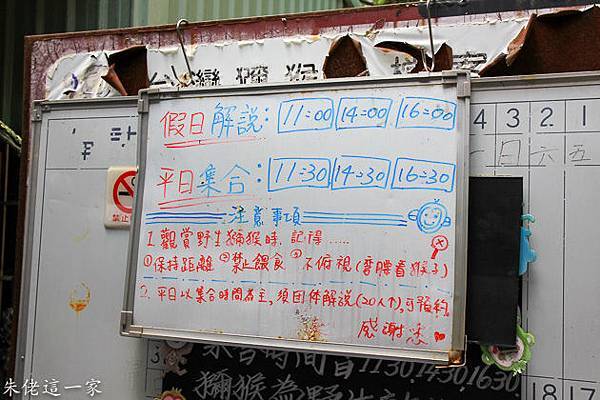 台灣獼猴
4 3 2 1
日 六 五
假日解說: 11:00 14:00 16:00
平日集合: 11:30 14:30 16:30
注意事項
1. 觀賞野生獼猴時, 記得......
①保持距離 ②禁止餵食 ③不俯視(彎腰看猴子)
2. 平日以集合時間為主, 須団体解說(20人↑), 可預約.
感謝您
禁止
集合時間皆1130.1430.1630
獼猴為野生
17
18
朱佬這一家